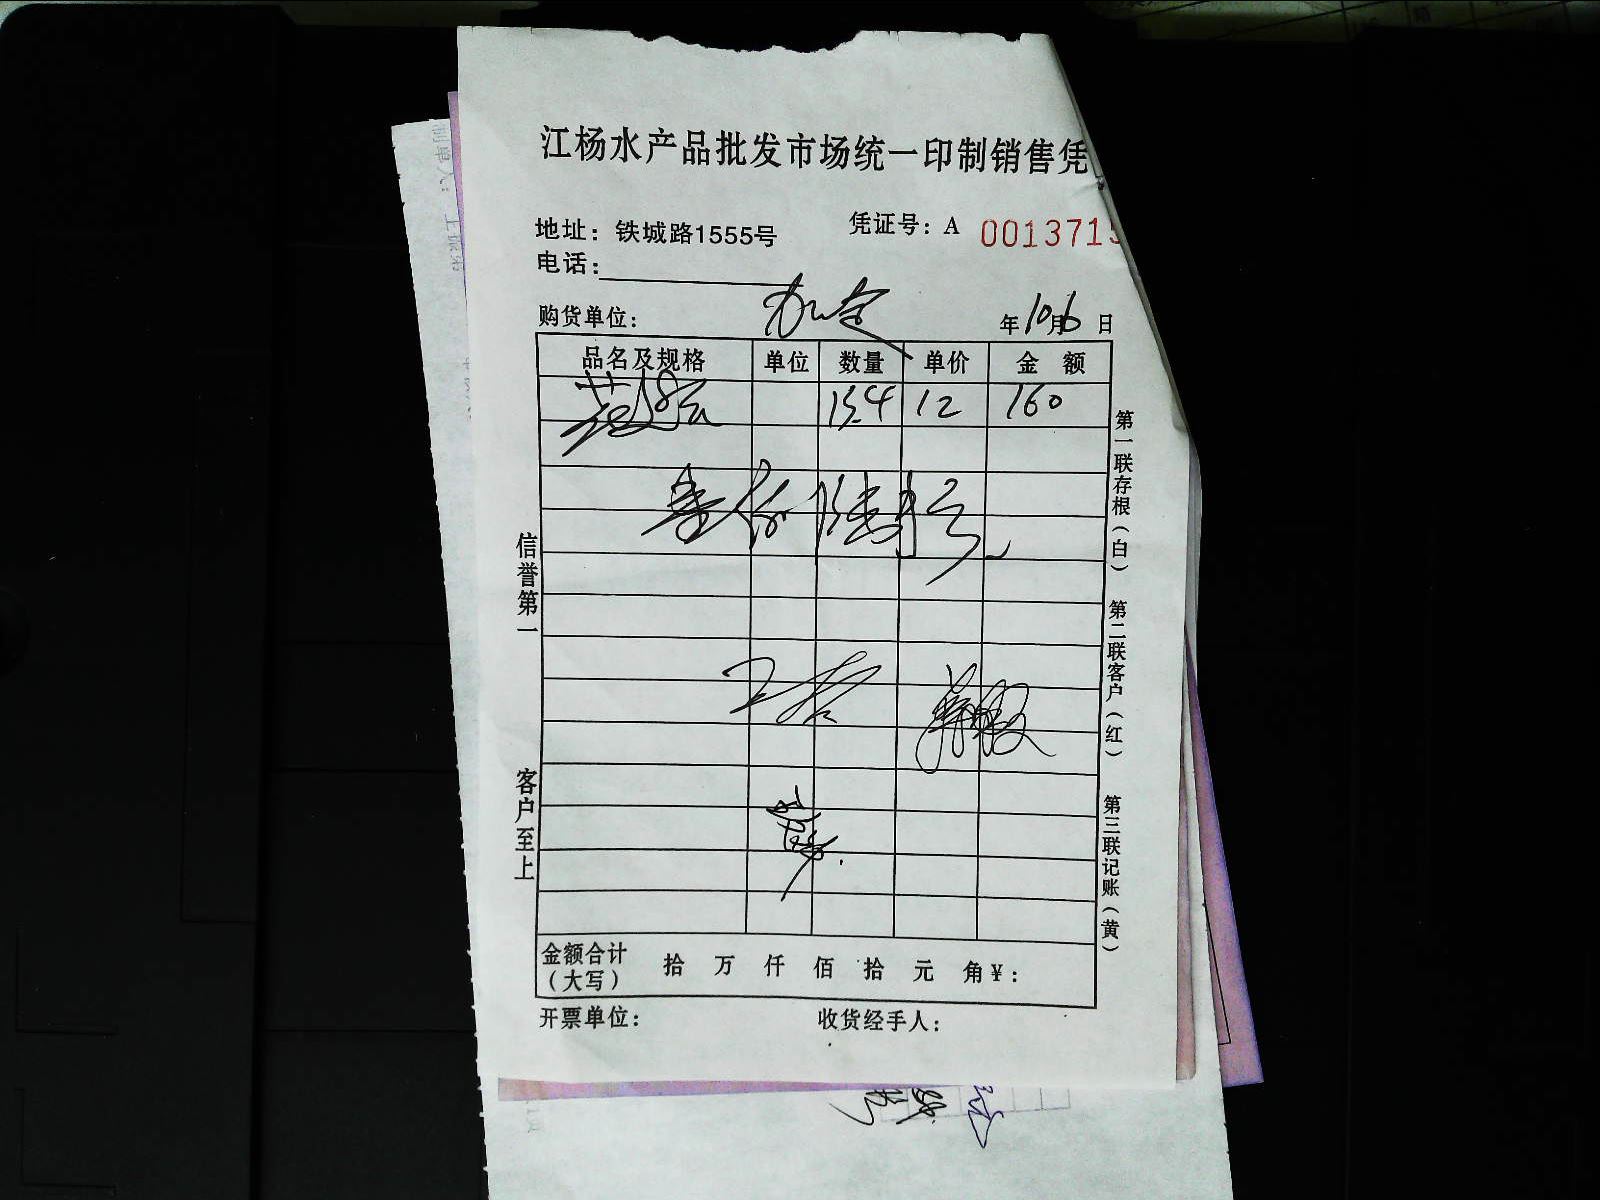 江杨水产品批发市场统一印制销售凭
地址：铁城路1555号
凭证号：A 001371
电话：
购货单位：
年10月6日
品名及规格 单位 数量 单价 金额
13.4 12 160
壹佰陆拾元
第一联存根（白）
第二联客户（红）
第三联记账（黄）
信誉第一
客户至上
金额合计（大写） 拾 万 仟 佰 拾 元 角 ¥：
开票单位：
收货经手人：